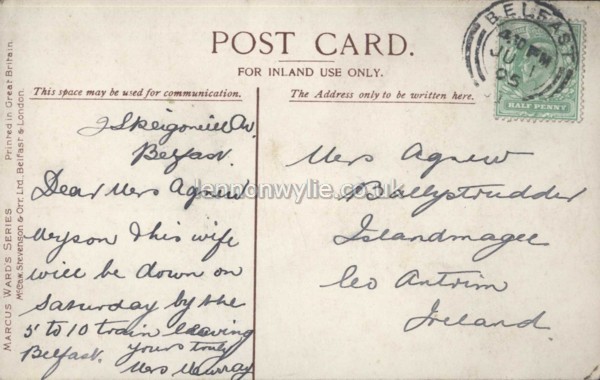 POST CARD.
FOR INLAND USE ONLY.
This space may be used for communication.
The Address only to be written here.
BELFAST
4.30 PM
JU 1
05
HALF PENNY
MARCUS WARD'S SERIES
Printed in Great Britain.
McCaw, Stevenson & Orr, Ltd., Belfast & London.
Skeigoneill Av.
Belfast.
Dear Mrs Agnew
My son & his wife
will be down on
Saturday by the
5 to 10 train leaving
Belfast. yours truly
Mrs Murray
Mrs Agnew
Ballystrudder
Islandmagee
Co Antrim
Ireland.
lennonwylie.co.uk